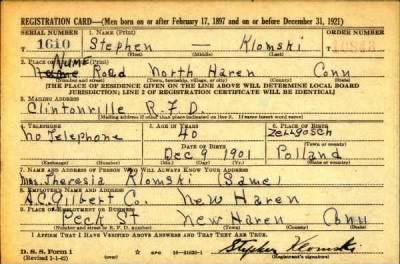 REGISTRATION CARD—(Men born on or after February 17, 1897 and on or before December 31, 1921)
SERIAL NUMBER 1. NAME (Print) ORDER NUMBER
1610 Stephen — Klomski
2. PLACE OF RESIDENCE (Print)
Nume Road North Haven Conn
(Number and street) (Town, township, village, or city) (County) (State)
[THE PLACE OF RESIDENCE GIVEN ON THE LINE ABOVE WILL DETERMINE LOCAL BOARD
JURISDICTION; LINE 2 OF REGISTRATION CERTIFICATE WILL BE IDENTICAL]
3. MAILING ADDRESS
Clintonville R.F.D.
[Mailing address if other than place indicated on line 2. If same insert word same]
4. TELEPHONE 5. AGE IN YEARS 6. PLACE OF BIRTH
No Telephone 40
DATE OF BIRTH (Town or county)
Dec 9 1901 Polland
(Exchange) (Number) (Mo.) (Day) (Yr.) (State or country)
7. NAME AND ADDRESS OF PERSON WHO WILL ALWAYS KNOW YOUR ADDRESS
Mrs. Theresia Klomski (Same)
8. EMPLOYER'S NAME AND ADDRESS
A.C. Gilbert Co. New Haven
9. PLACE OF EMPLOYMENT OR BUSINESS
Peck St New Haven Conn
(Number and street or R. F. D. number) (Town) (County) (State)
I AFFIRM THAT I HAVE VERIFIED ABOVE ANSWERS AND THAT THEY ARE TRUE.
D. S. S. Form 1
(Revised 1-1-42) (over) Stephen Klomski
(Registrant's signature)